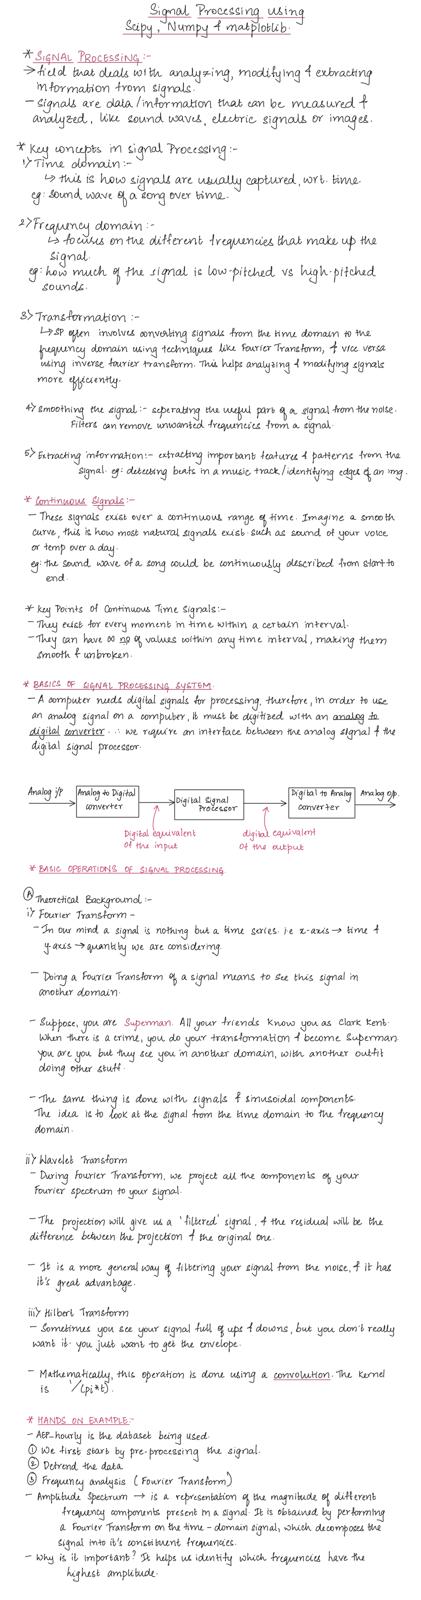 Signal Processing using
Scipy, Numpy & matplotlib.
* SIGNAL PROCESSING :-
→ field that deals with analyzing, modifying & extracting
information from signals.
- signals are data/information that can be measured &
analyzed, like sound waves, electric signals or images.
* Key concepts in signal Processing:-
1) Time domain:-
↳ this is how signals are usually captured, wrt. time.
eg: sound wave of a song over time.
2) Frequency domain:-
↳ focuses on the different frequencies that make up the
signal.
eg: how much of the signal is low-pitched vs high-pitched
sounds.
3) Transformation :-
↳ SP often involves converting signals from the time domain to the
frequency domain using techniques like Fourier Transform, & vice versa
using inverse fourier transform. This helps analyzing & modifying signals
more efficiently.
4) Smoothing the signal:- seperating the useful part of a signal from the noise.
Filters can remove unwanted frequencies from a signal.
5) Extracting information:- extracting important features & patterns from the
signal. eg: detecting beats in a music track/identifying edges of an img.
* Continuous Signals:-
- These signals exist over a continuous range of time. Imagine a smooth
curve, this is how most natural signals exist such as sound of your voice
or temp over a day.
eg: the sound wave of a song could be continuously described from start to
end.
* Key Points of Continuous Time Signals:-
- They exist for every moment in time within a certain interval.
- They can have ∞ no of values within any time interval, making them
smooth & unbroken.
* BASICS OF SIGNAL PROCESSING SYSTEM.
- A computer needs digital signals for processing, therefore, in order to use
an analog signal on a computer, it must be digitized with an analog to
digital converter. ∴ we require an interface between the analog signal & the
digital signal processor.
Analog i/p
Analog to Digital
converter
Digital Signal
Processor
Digital to Analog
converter
Analog o/p.
Digital equivalent
of the input
digital equivalent
of the output
* BASIC OPERATIONS OF SIGNAL PROCESSING
A Theoretical Background:-
i) Fourier Transform -
- In our mind a signal is nothing but a time series. i.e x-axis → time &
y axis → quantity we are considering.
- Doing a Fourier Transform of a signal means to see this signal in
another domain.
- Suppose, you are Superman. All your friends know you as Clark Kent.
When there is a crime, you do your transformation & become Superman.
You are you but they see you in another domain, with another outfit
doing other stuff.
- The same thing is done with signals & sinusoidal components.
The idea is to look at the signal from the time domain to the frequency
domain.
ii) Wavelet Transform
- During Fourier Transform, we project all the components of your
Fourier spectrum to your signal.
- The projection will give us a 'filtered' signal, & the residual will be the
difference between the projection & the original one.
- It is a more general way of filtering your signal from the noise, & it has
it's great advantage.
iii) Hilbert Transform
- Sometimes you see your signal full of ups & downs, but you don't really
want it. you just want to get the envelope.
- Mathematically, this operation is done using a convolution. The kernel
is 1/(pi*t).
* HANDS ON EXAMPLE:-
- AEP_hourly is the dataset being used.
① We first start by pre-processing the signal.
② Detrend the data
③ Frequency analysis (Fourier Transform)
- Amplitude Spectrum → is a representation of the magnitude of different
frequency components present in a signal. It is obtained by performing
a Fourier Transform on the time-domain signal, which decomposes the
signal into it's constituent frequencies.
- Why is it important? It helps us identify which frequencies have the
highest amplitude.